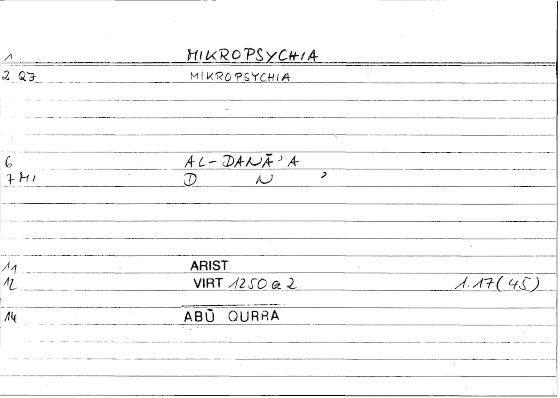 1 MIKROPSYCHIA
2 QJ MIKROPSYCHIA
6 AL-DANĀ'A
7 MI D N '
11 ARIST
12 VIRT 1250 a 2 1.17(45)
14 ABŪ QURRA